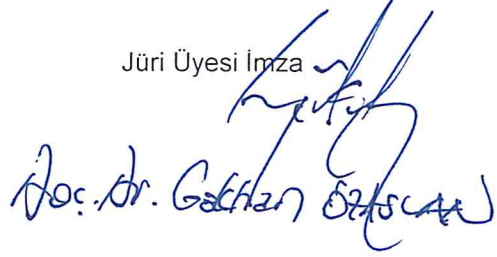 Jüri Üyesi İmza
Doç. Dr. Gökhan ÖZASLAN